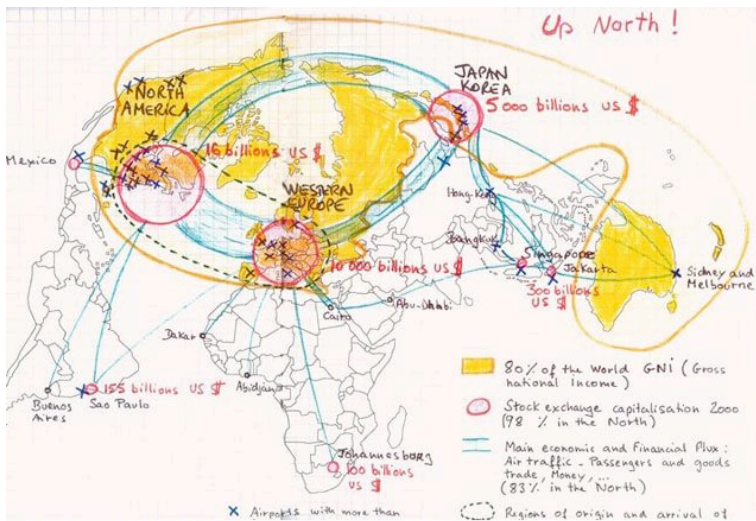 Up North!
NORTH
AMERICA
JAPAN
KOREA
5 000 billions US $
16 billions US $
Mexico
WESTERN
EUROPE
Hong-Kong
Bangkok
Singapore
Jakarta
10 000 billions
US $
300 billions
US $
Sidney and
Melbourne
Cairo
Abu-Dhabi
Dakar
Abidjan
155 billions US $
Buenos
Aires
Sao Paulo
Johannesburg
100 billions
US $
80% of the World GNI (Gross
national Income)
Stock exchange capitalisation 2000
(98 % in the North)
Main economic and Financial Flux:
Air traffic - Passengers and goods
trade, Money, ...
(83% in the North)
Airports with more than
Regions of origin and arrival of